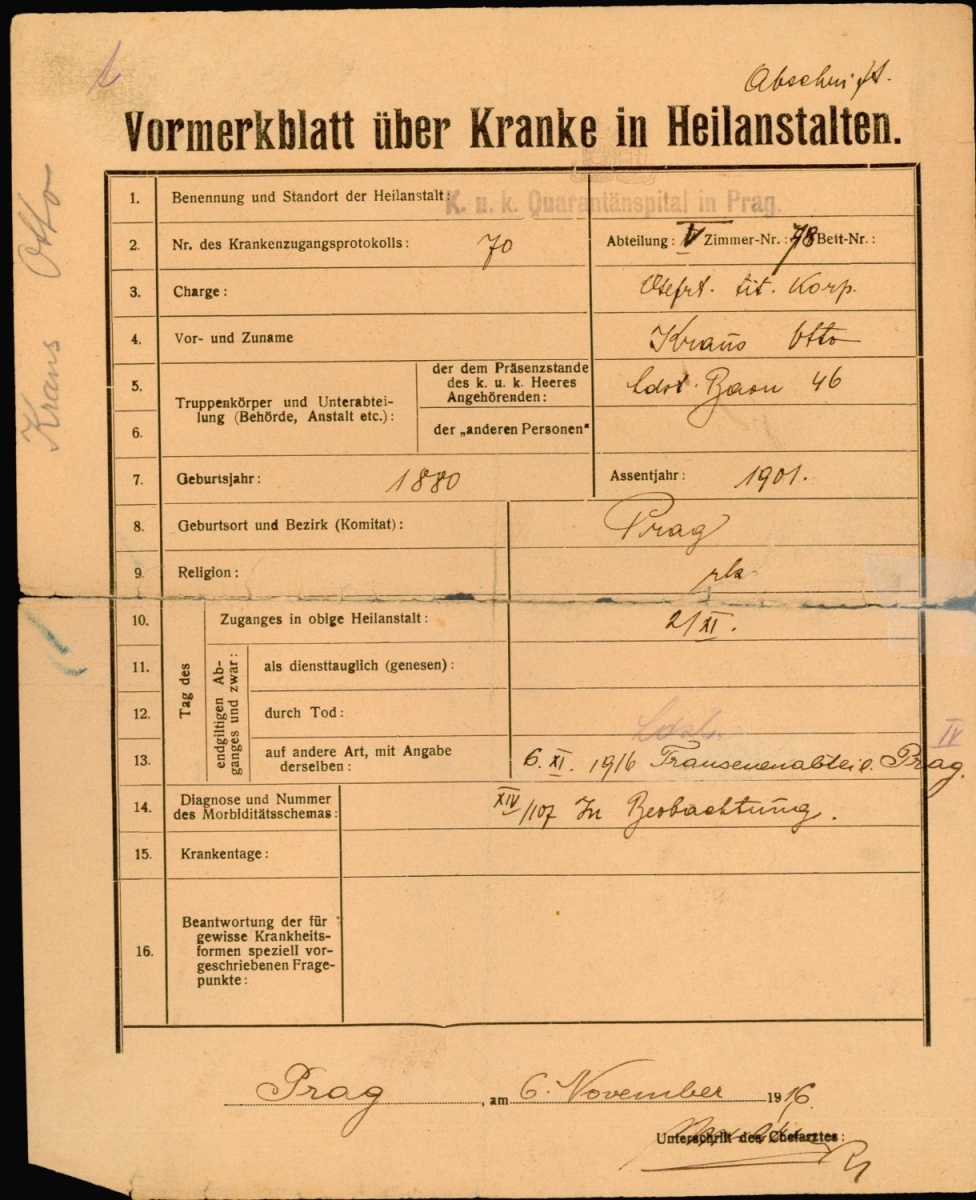 Abschrift.
Vormerkblatt über Kranke in Heilanstalten.
Kraus Otto
1. Benennung und Standort der Heilanstalt: K. u. k. Quarantänspital in Prag.
2. Nr. des Krankenzugangsprotokolls: 70 Abteilung: V Zimmer-Nr.: 78 Bett-Nr.:
3. Charge: tit. Korp.
4. Vor- und Zuname Kraus Otto
5. Truppenkörper und Unterabtei-
lung (Behörde, Anstalt etc.):
der dem Präsenzstande
des k. u. k. Heeres
Angehörenden:
Ldst. Baon 46
6. der „anderen Personen"
7. Geburtsjahr: 1880 Assentjahr: 1901.
8. Geburtsort und Bezirk (Komitat): Prag
9. Religion: rk
Tag des
10. Zuganges in obige Heilanstalt: 2/XI.
endgiltigen Ab-
ganges und zwar:
11. als diensttauglich (genesen):
12. durch Tod:
IV
13. auf andere Art, mit Angabe
derselben:
6. XI. 1916 Prag.
14. Diagnose und Nummer
des Morbiditätsschemas:
XIV/107 In Beobachtung.
15. Krankentage:
16. Beantwortung der für
gewisse Krankheits-
formen speziell vor-
geschriebenen Frage-
punkte:
Prag, am 6. November 1916.
Unterschrift des Chefarztes: